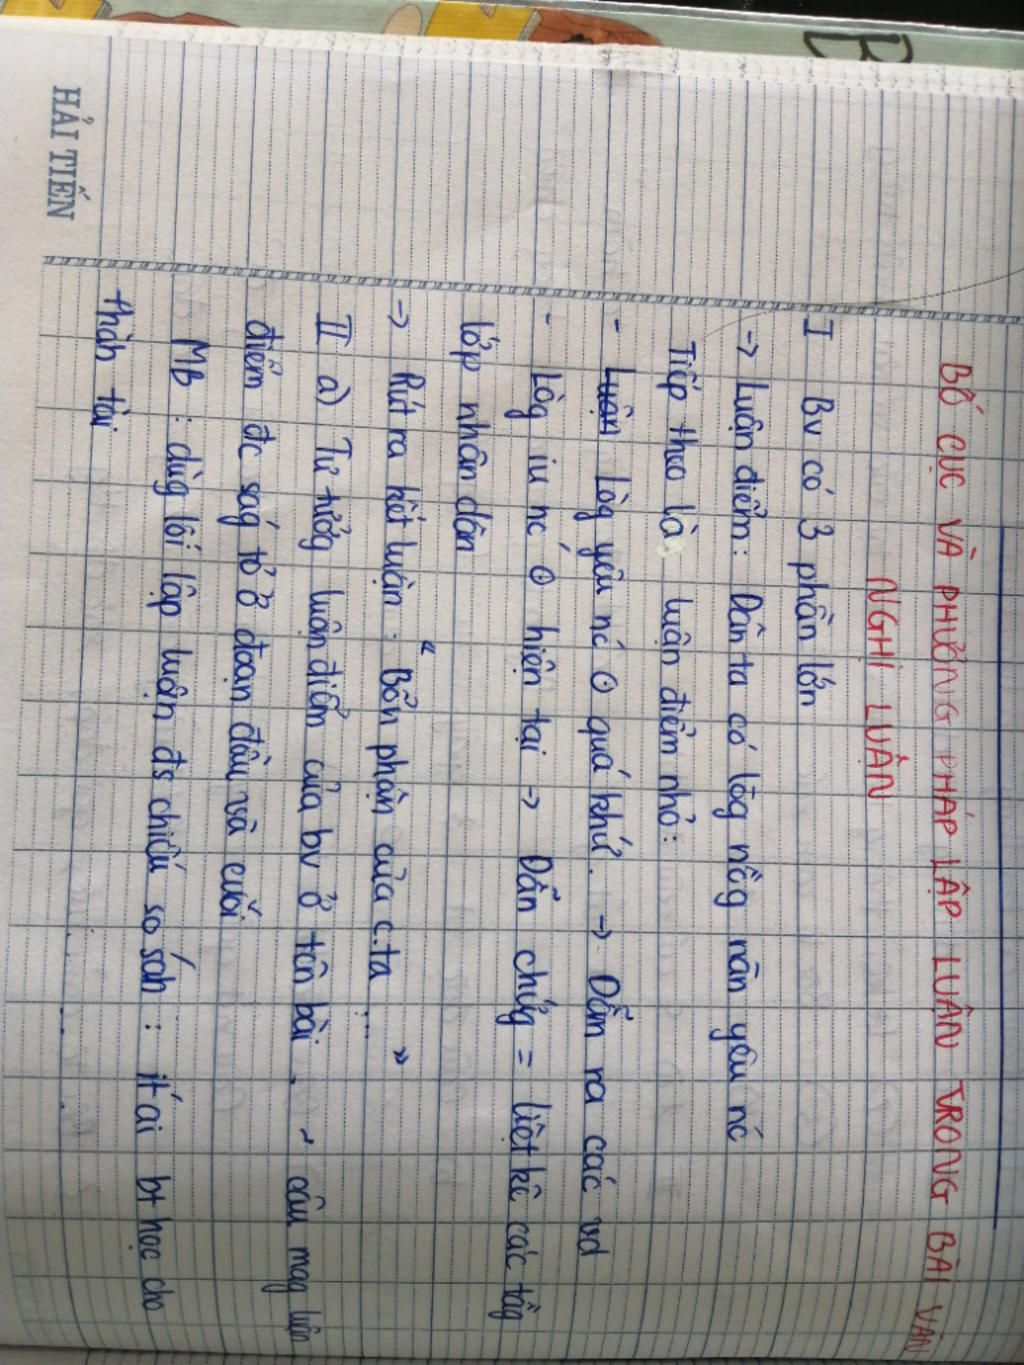 BỐ CỤC VÀ PHƯƠNG PHÁP LẬP LUẬN TRONG BÀI VĂN
NGHỊ LUẬN
I Bv có 3 phần lớn
-> Luận điểm: Dân ta có lòg nồg nàn yêu nc
Tiếp theo là luận điểm nhỏ:
- Luận Lòg yêu nc ⊖ quá khứ. -> Dẫn ra các vd
- Lòg iu nc ⊖ hiện tại -> Dẫn chứg = liệt kê các tầg
lớp nhân dân
-> Rút ra kết luận: "Bổn phận của c.ta ... "
II a) Tư tưởg luận điểm của bv ở tên bài. ~ câu mag luận
điểm đcság tỏ ở đoạn đầu và cuối
MB : dùg lối lập luận đs chiếu so sáh : ít ai bt học cho
thàh tài
HẢI TIẾN
B